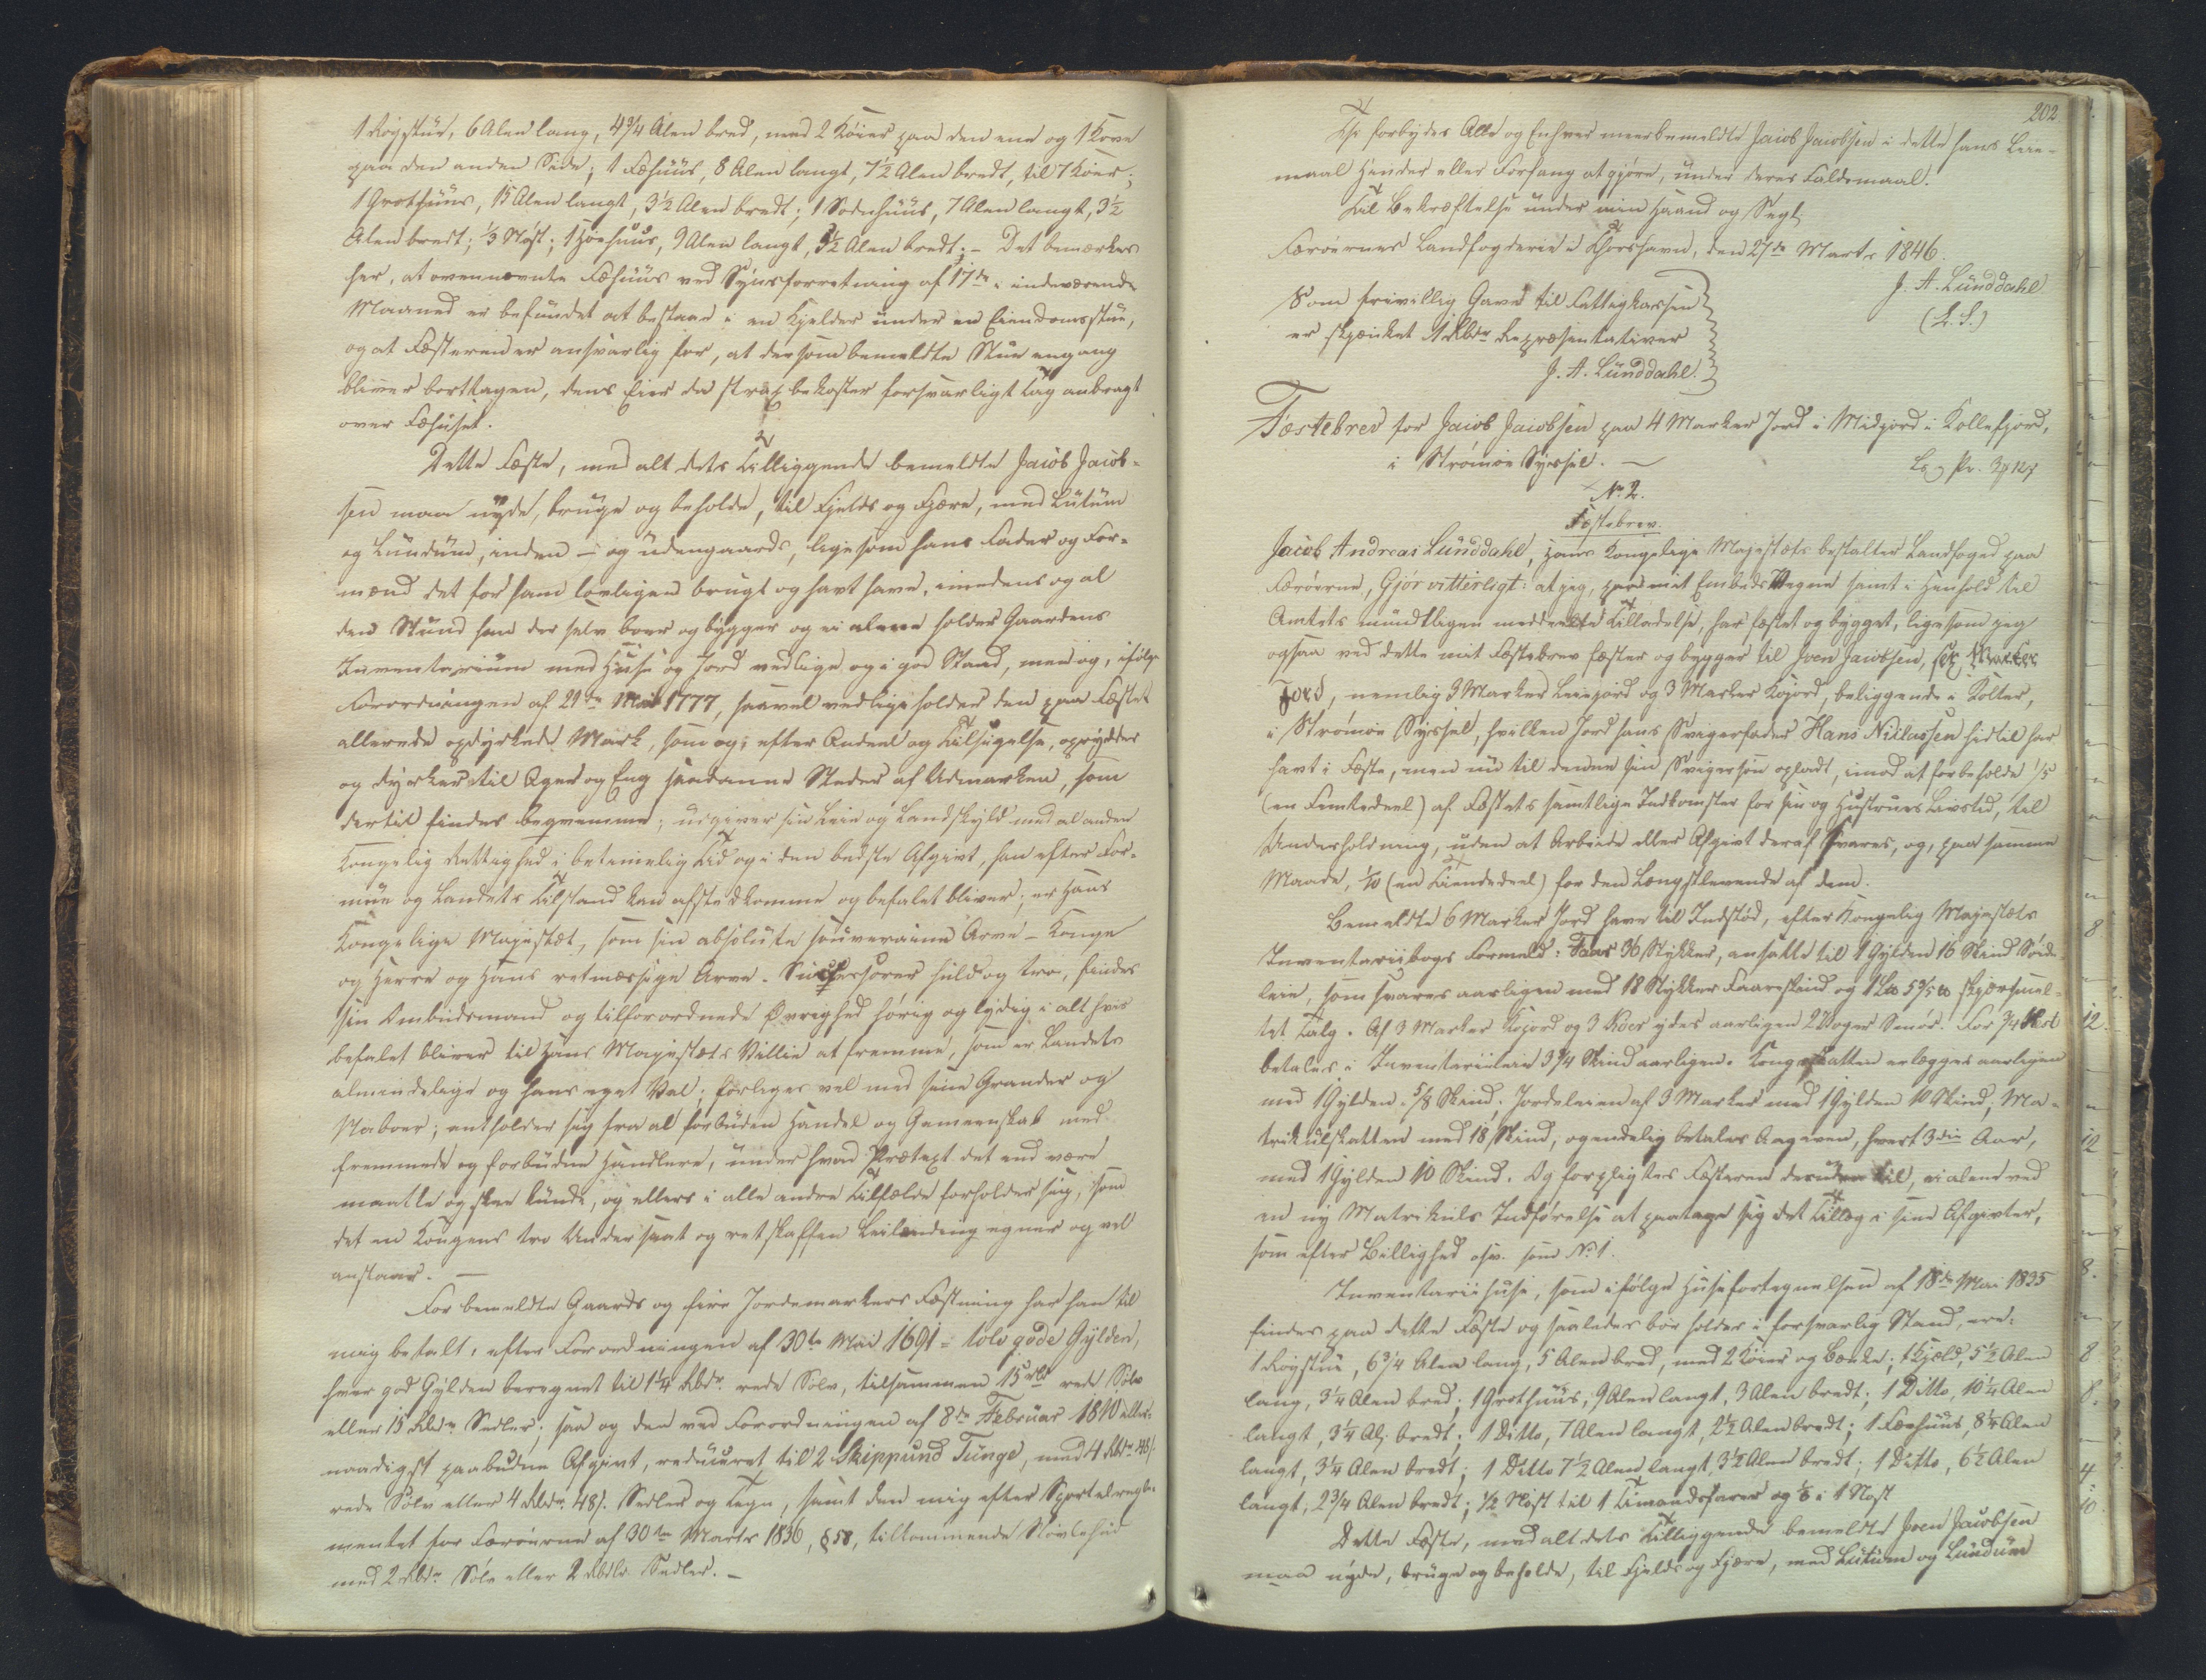 1 Røgstue, 6 Alen lang, 4 3/4 Alen bred, med 2 Køier paa den ene og 1 Kove
paa den anden Side; 1 Fæhuus, 8 Alen langt, 7 1/2 Alen bredt, til 7 Køer;
1 Grothuus, 15 Alen langt, 3 1/2 Alen bredt; 1 Sodnhuus, 7 Alen langt, 3 1/2
Alen bredt; 1/3 Nøst; 1 Høehuus, 9 Alen langt, 3 1/2 Alen bredt; – Det bemærkes
her, at ovennævnte Fæhuus ved Synsforretning af 17de indeværende
Maaned er befundet at bestaae i en Kjelder under en Eiendomsstue,
og at Fæsteren er ansvarlig for, at dersom bemeldte Stue engang
bliver borttagen, dens Eier da strax bekoster forsvarligt Tag anbragt
over Fæhuset.
Dette Fæste, med alt dets Tilliggende bemeldte Jacob Jacob-
sen maa nyde, bruge og beholde, til Fjelds og Fjære, med Lutum
og Lundum, inden – og udengaards, ligesom hans Fader og For-
mænd det før ham lovligen brugt og havt have, imedens og al
den Stund han der selv boer og bygger og ei alene holder Gaardens
Inventarium med Huse og Jord vedlige og i god Stand, men og, ifølge
Forordningen af 21de Mai 1777, saavel vedligeholder den paa Fæstet
allerede opdyrkede Mark, som og, efter Andeel og Tilsigelse, oprydder
og dyrker til Ager og Eng saadanne Steder af Udmarken, som
dertil findes beqvemme; udgiver sin Leie og Landskyld med al anden
Kongelig Rettighed i betimelig Tid og i den bedste Afgivt, han efter For-
mue og Landets Tilstand kan afstedkomme og befalet bliver; er Hans
Kongelige Majestæt, som sin absolute souveraine Arve-Konge
og Herre og Hans retmæssige Arve-Successorer huld og tro, findes
sin Ombudsmand og tilforordnede Øvrighed hørig og lydig i alt hvis
befalet bliver til Hans Majestæts Villie at fremme, som er Landets
almindelige og hans eget Vel; forliges vel med sine Grander og
Naboer; entholder sig fra al forbuden Handel og Gemeenskab med
fremmede og forbudne Handlere, under hvad Prætext det end være
maatte og skee kunde, og ellers i alle andre Tilfælde forholder sig, som
det en Kongens tro Undersaat og retskaffen Leilænding egner og vel
anstaaer. –
For bemeldte Gaards og fire Jordemarkers Fæstning har han til
mig betalt, efter Forordningen af 30te Mai 1691 = tolv gode Gylden,
hver god Gylden beregnet til 1 1/4 Rbdr. rede Sølv, tilsammen 15 rbd rede Sølv
eller 15 Rbdr Sedler; saa og den ved Forordningen af 8de Februar 1810 aller-
naadigst paabudne Afgivt, reduceret til 2 Skippund Tunge, med 4 Rbdr. 48 ß.
rede Sølv eller 4 Rbdr. 48 ß. Sedler og Tegn, samt den mig efter Sportelregle-
mentet for Færøerne af 30te Marts 1836, § 58, tilkommende Støvlehud
med 2 Rbdr Sølv eller 2 Rbdlr. Sedler. –
202
Thi forbydes Alle og Enhver meerbemeldte Jacob Jacobsen i dette hans Leie-
maal Hinder eller Forfang at gjøre, under deres Faldsmaal.
Til Bekræftelse under min Haand og Segl.
Færøernes Landfogderie i Thorshavn, den 27de Marts 1846.
J. A. Lunddahl
(L. S.)
Som frivillig Gave til Fattigkassen
er skjænket 1 Rbdr Repræsentativer
J. A. Lunddahl.
Fæstebrev for Jacob Jacobsen paa 4 Marker Jord i Midjord i Kollefjord,
i Strømøe Syssel. –
No 2.
Fæstebrev.
Jacob Andreas Lunddahl, Hans Kongelige Majestæts bestalter Landfoged paa
Færøerne, Gjør vitterligt: at jeg, paa mit Embeds Vegne samt i Henhold til
Amtets mundtligen meddeelte Tilladelse, har fæstet og bygget, ligesom jeg
ogsaa ved dette mit Fæstebrev fæster og bygger til Joen Jacobsen, sex Marker
Jord, nemlig 3 Marker Leiejord og 3 Marker Kojord, beliggende i Kolter,
i Strømøe Syssel, hvilken Jord hans Svigerfader Hans Niclassen hidtil har
havt i Fæste, men nu til denne sin Svigersøn opladt, imod at forbeholde 1/5
(en Femtedeel) af Fæstets samtlige Indkomster for sin og Hustrues Livstid, til
Underholdning, uden at Arbeide eller Afgivt deraf svares, og, paa samme
Maade, 1/10 (en Tiendedeel) for den Længstlevende af dem.
Bemeldte 6 Marker Jord have til Indstød, efter Kongelig Majestæts
Inventariibogs Formeld: Faar 36 Stykker, ansatte til 1 Gylden 16 Skind Søide-
leie, som svares aarligen med 18 Stykker Faareskind og 1 L℔ 5 3/5 ℔ skjærsmel-
tet Talg. Af 3 Marker Kojord og 3 Køer ydes aarligen 2 Voger Smør. For 3/4 Hest
betales i Inventariileie 3 3/4 Skind aarligen. Kongeskatten erlægges aarligen
med 1 Gylden 5/8 Skind; Jordeleien af 3 Marker med 1 Gylden 10 Skind; Ma-
trikulskatten med 18 Skind, og endelig betales Aagiven, hvert 3die Aar,
med 1 Gylden 10 Skind. Og forpligtes Fæsteren desuden til, ei alene ved
en ny Matrikuls Indførelse at paatage sig det Tillæg i sine Afgivter,
som efter Billighed osv. som No 1.
Inventarii huse, som ifølge Husefortegnelsen af 18de Mai 1835
findes paa dette Fæste og saaledes bør holdes i forsvarlig Stand, ere:
1 Røgstue, 6 3/4 Alen lang, 5 Alen bred, med 2 Køier og Bænke; 1 Hjeld, 5 1/2 Alen
lang, 3 1/4 Alen bred; 1 Grothuus, 9 Alen langt, 3 Alen bredt; 1 Ditto, 10 1/4 Alen
langt, 3 1/4 Al. bredt; 1 Ditto, 7 Alen langt, 2 1/2 Alen bredt; 1 Fæehuus, 8 1/4 Alen
langt, 3 1/4 Alen bredt; 1 Ditto 7 1/2 Alen langt, 3 1/2 Alen bredt; 1 Ditto, 6 1/2 Alen
langt, 2 3/4 Alen bredt; 1/2 Nøst til 1 Timandsfarer og i 1 Nøst
Dette Fæste, med alt dets Tilliggende bemeldte Joen Jacobsen
maa nyde, bruge og beholde, til Fjelds og Fjære, med Lutum og Lundum